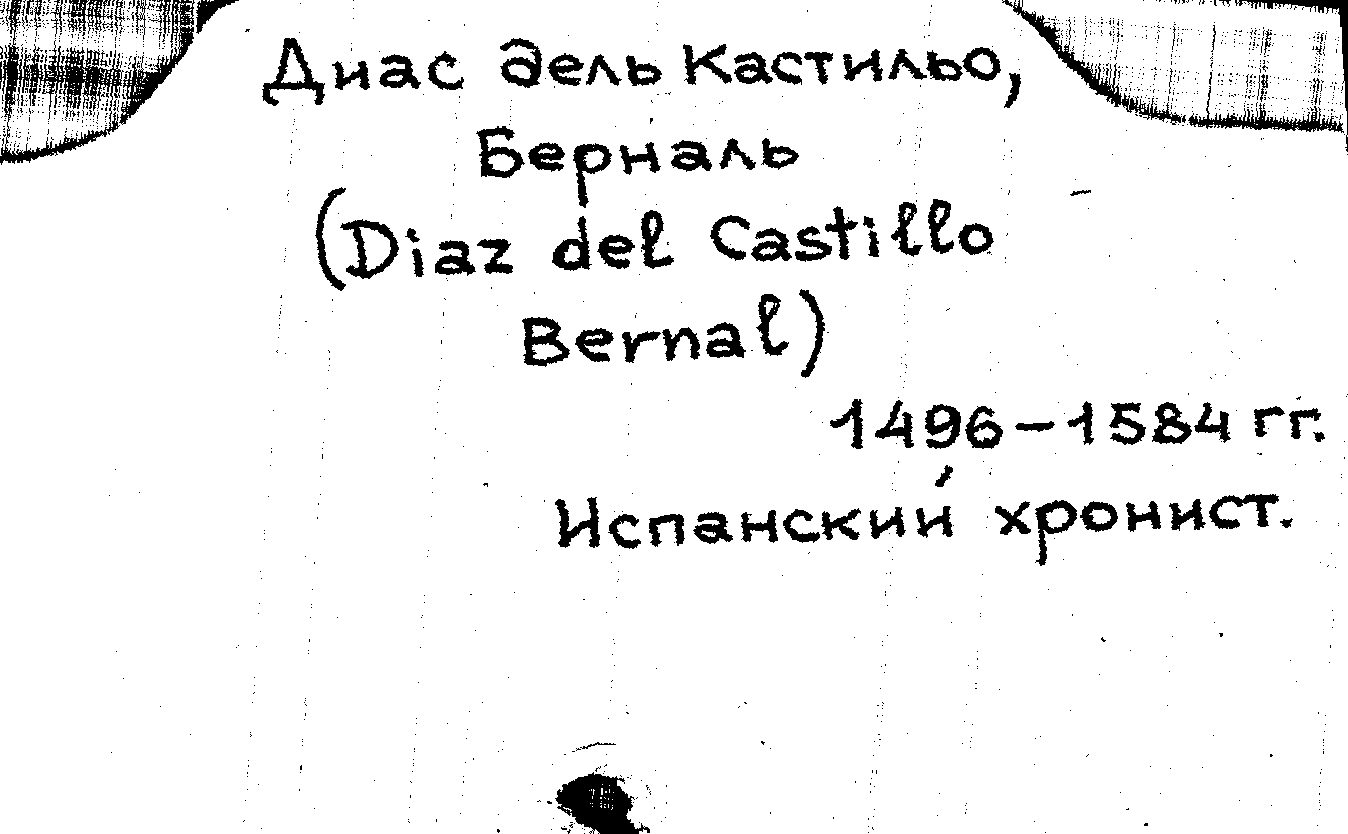 Диас дель Кастильо,
Берналь
(Diaz del Castillo
Bernal)
1496–1584 гг.
Испанский хронист.